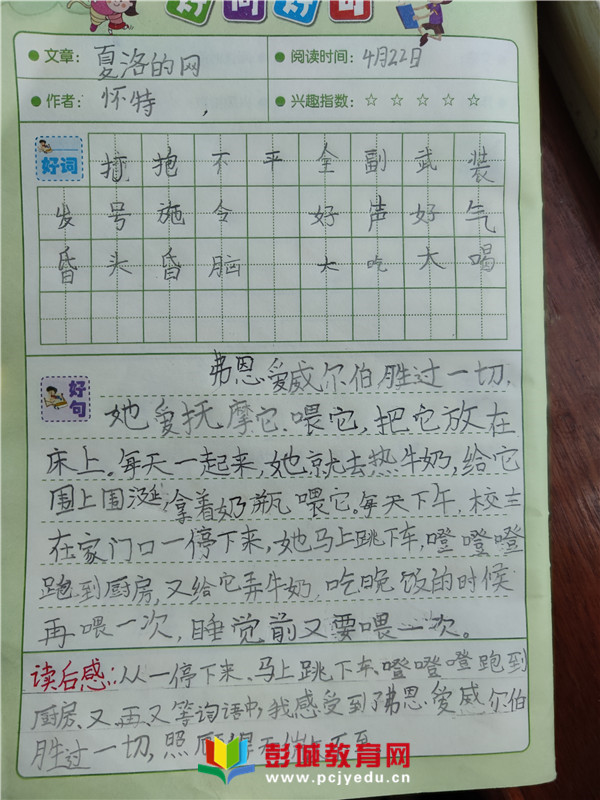 好词好句
文章: 夏洛的网
阅读时间: 4月22日
作者: 怀特 ,
兴趣指数: ☆ ☆ ☆ ☆ ☆
好词
抱不平 全副武装
发号施令 好声好气
昏头昏脑 大吃大喝
好句
弗恩爱威尔伯胜过一切,
她爱抚摩它、喂它,把它放在
床上。每天一起来,她就去热牛奶,给它
围上围涎,拿着奶瓶喂它。每天下午,校车
在家门口一停下来,她马上跳下车,噔噔噔
跑到厨房,又给它弄牛奶,吃晚饭的时候
再喂一次,睡觉前又要喂一次。
读后感:从一停下来、马上跳下车、噔噔噔跑到
厨房、又、再、又等词语中,我感受到了弗恩爱威尔伯
胜过一切,照顾得无
彭城教育网
www.pcjyedu.cn